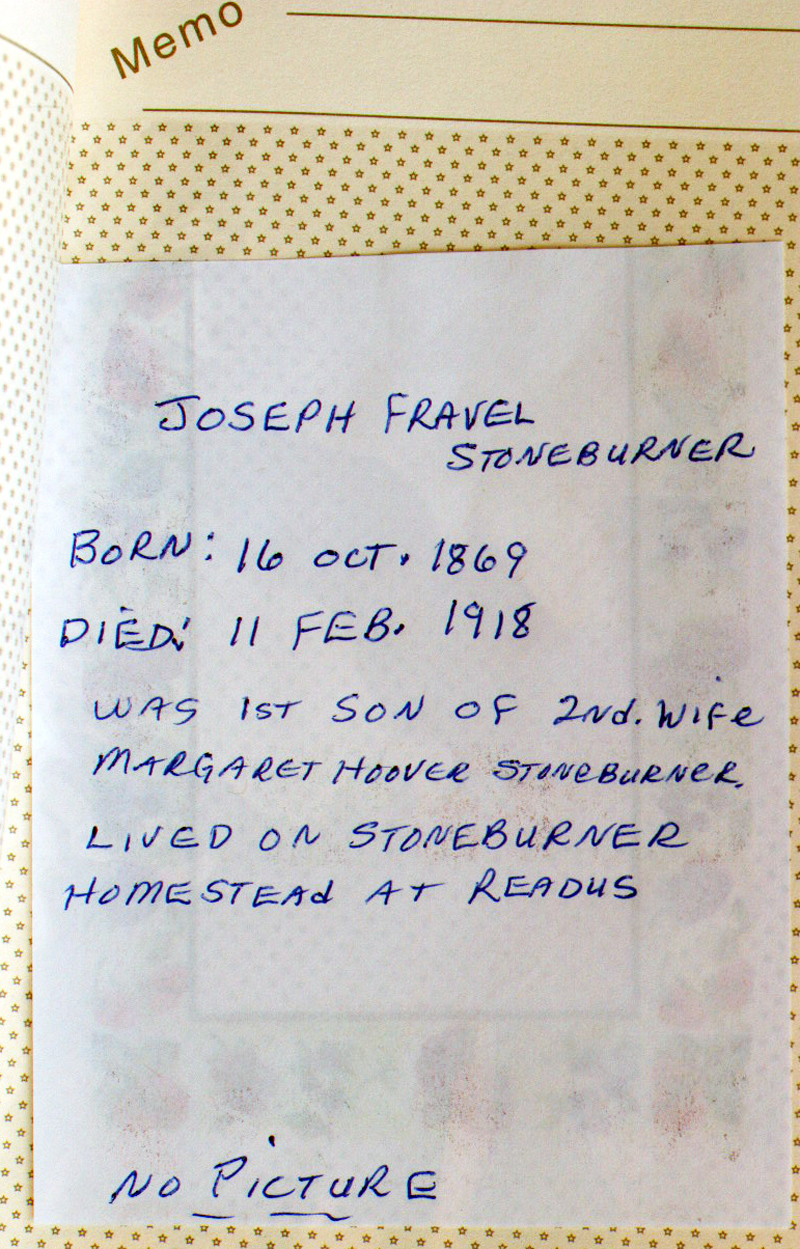 Memo
JOSEPH FRAVEL
STONEBURNER
BORN: 16 OCT. 1869
DIED: 11 FEB. 1918
WAS 1ST SON OF 2Nd. WIFE
MARGARET HOOVER STONEBURNER.
LIVED ON STONEBURNER
HOMESTEAd AT READUS
NO PICTURE